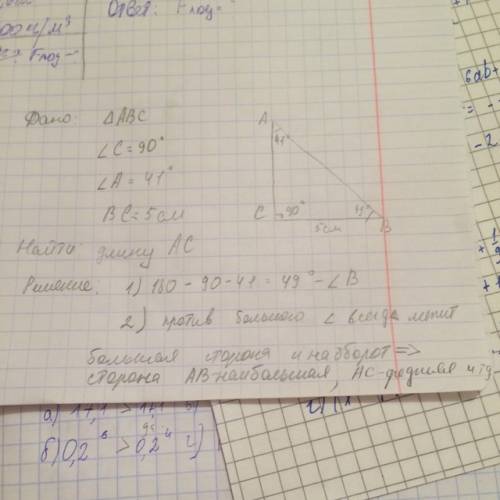 Ответ: Fпод=
Дано: ΔABC
∠C=90°
∠A=41°
BC=5см
A
41°
C 90° 49° B
5см
Найти длину AC
Решение: 1) 180-90-41=49°-∠B
2) против большого ∠ всегда лежит
большая сторона и наоборот=>
сторона AB-наибольшая, AC-средняя
6ab+
-2
а) 17,1 > 17,1
б) 0,2 > 0,2